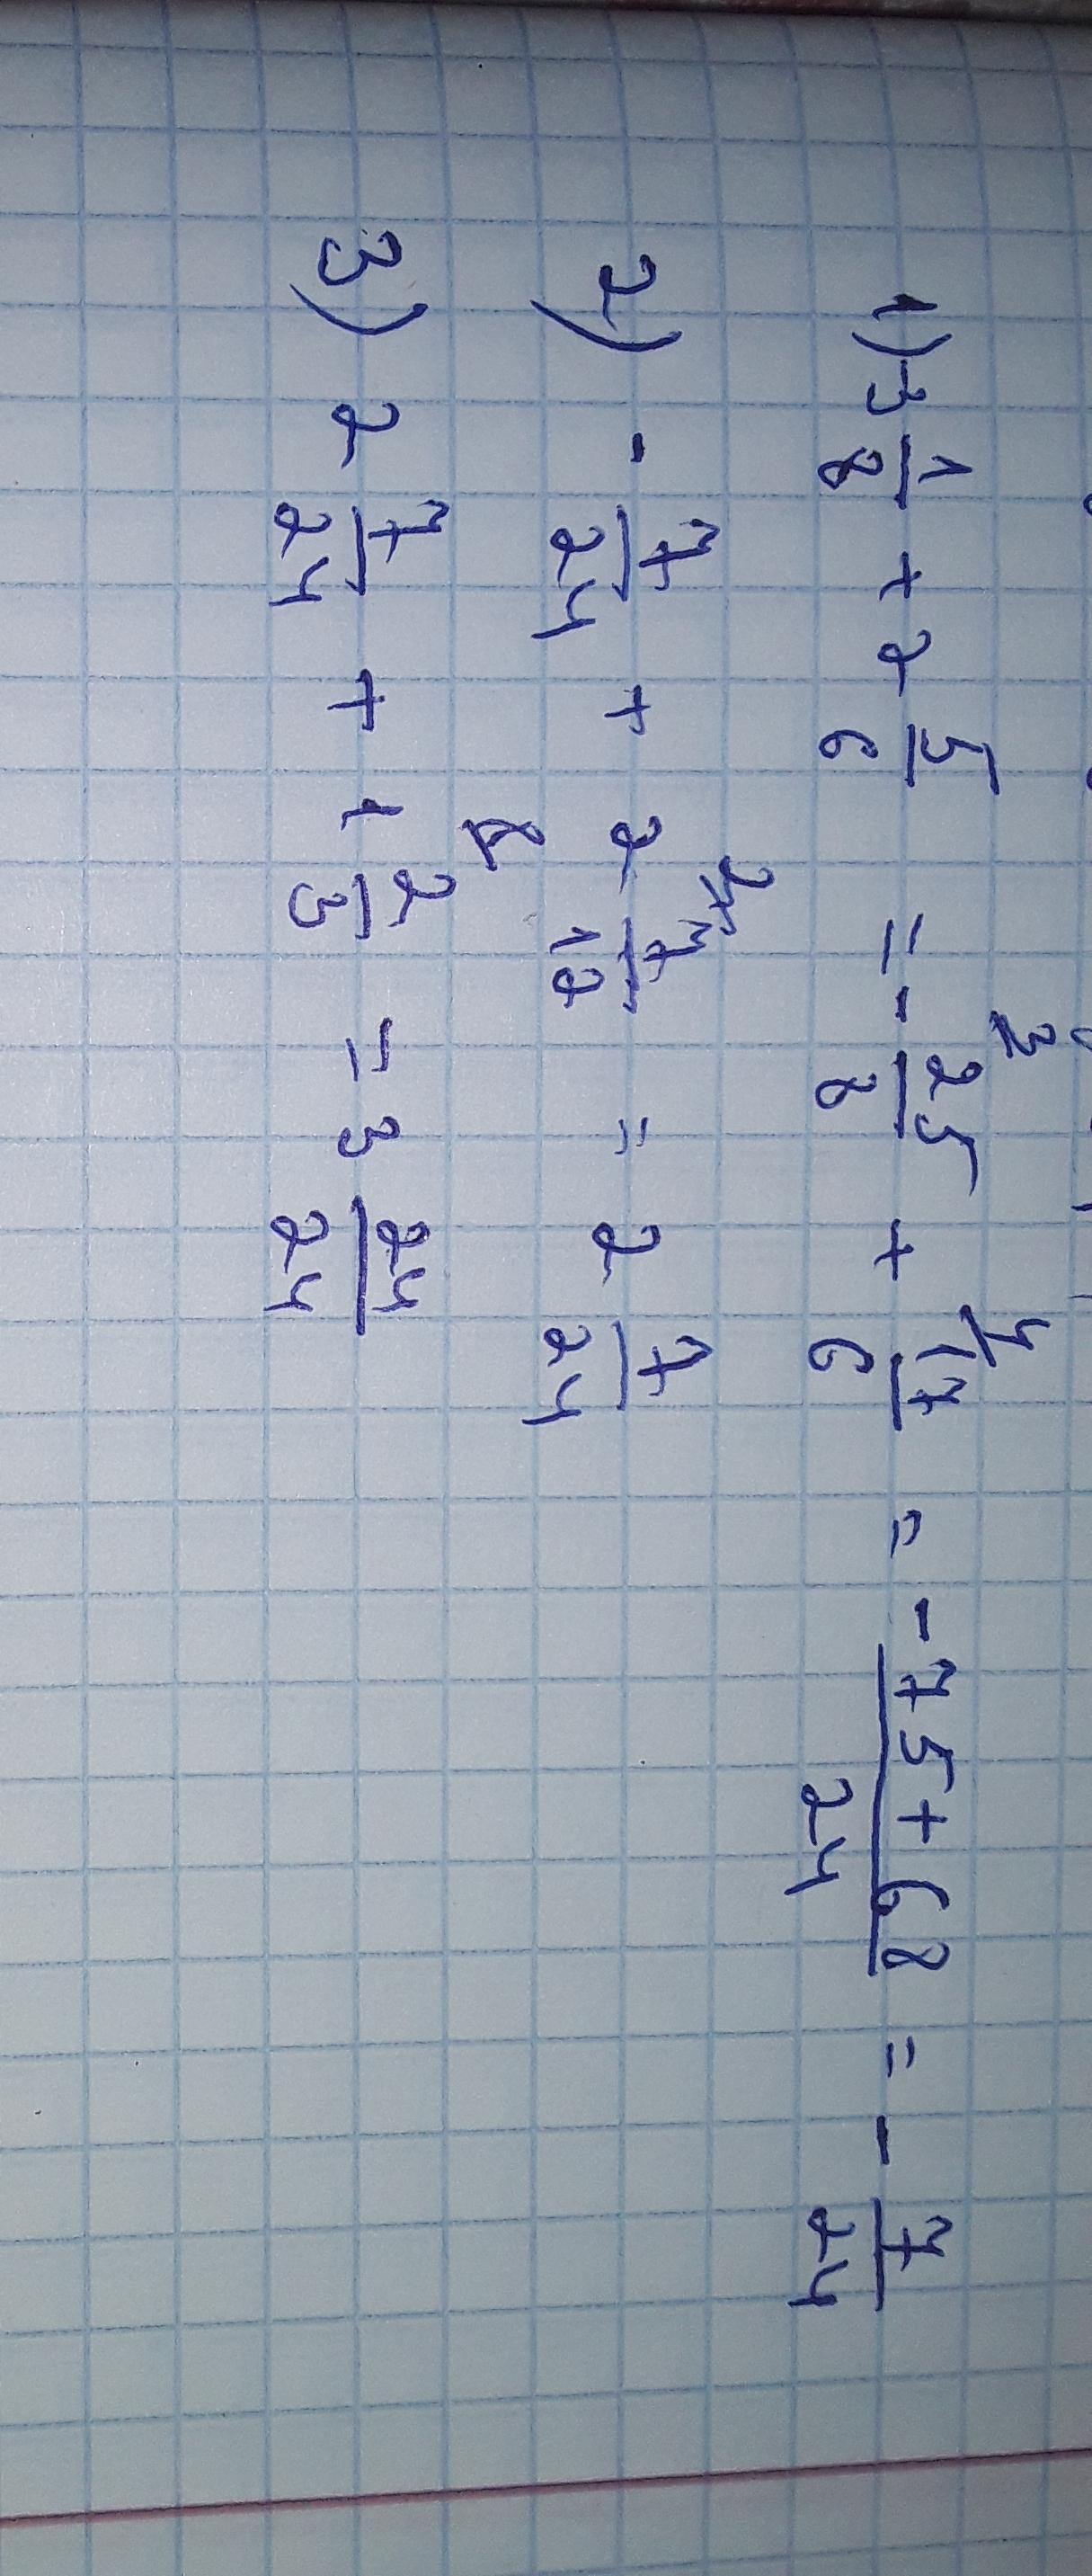 1) 3 1/8 + 2 5/6 = - 25/8 (3 + 17/6 (4 = - 75 + 68/24 = - 7/24
2) - 7/24 + 2 7/12 (2 = 2 7/24
3) 2 7/24 + 1 2/3 (8 = 3 24/24